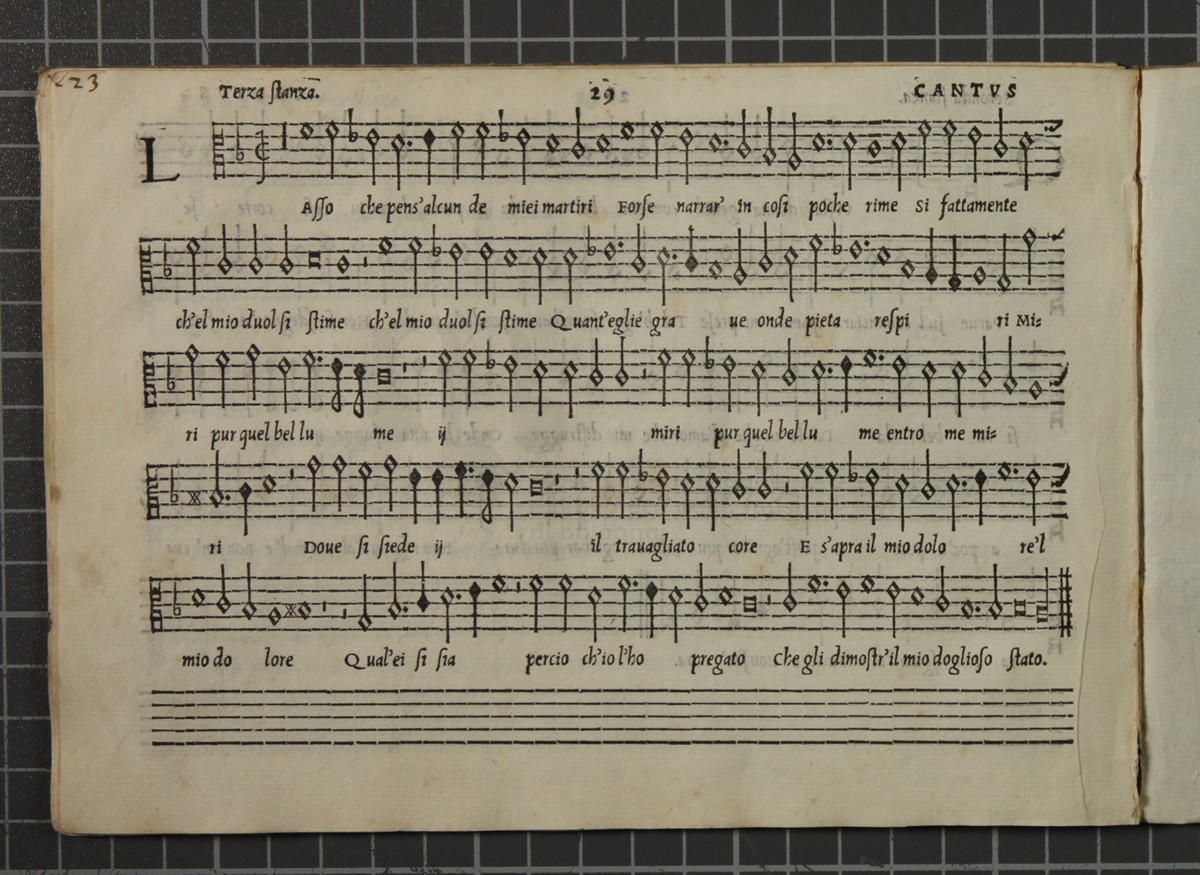 223
Terza ſtanza. 29 CANTVS
L
Aſſo che pens'alcun de miei martiri Forſe narrar' in coſi poche rime Si fattamente
ch'el mio duol ſi ſtime ch'el mio duol ſi ſtime Quant'eglie gra ue onde pieta reſpi ri Mi=
ri pur quel bel lu me ij miri pur quel bel lu me entro me mi=
ri Doue ſi ſiede ij il trauagliato core E s'apra il mio dolo re'l
mio do lore Qual'ei ſi ſia percio ch'io l'ho pregato Che gli dimoſtr'il mio doglioſo ſtato.